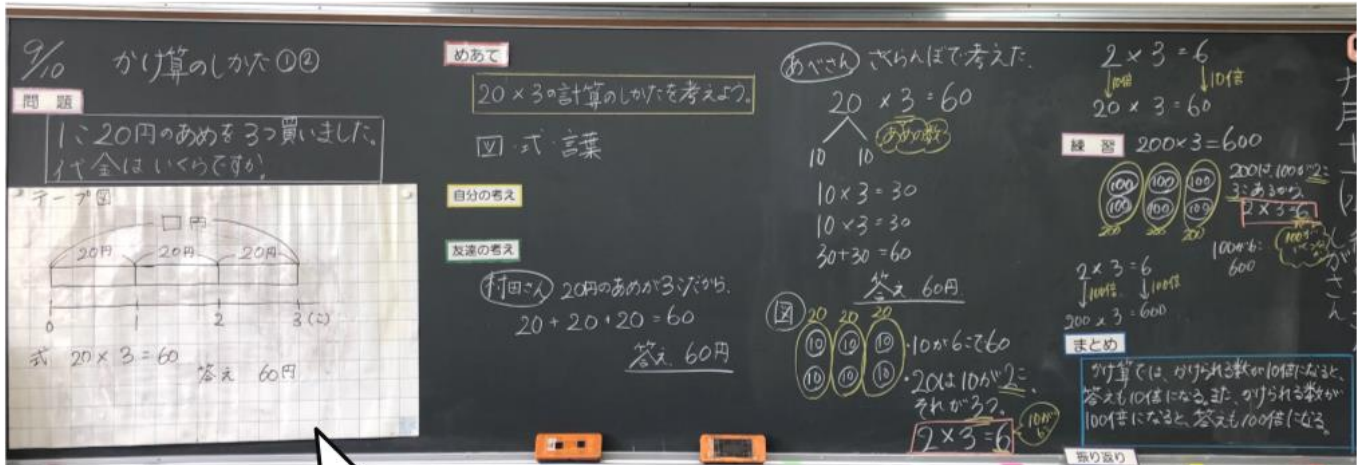 9/10 かけ算のしかた①②
問題
1こ20円のあめを3つ買いました。
代金はいくらですか。
テープ図
□円
20円 20円 20円
0 1 2 3(こ)
式 20×3=60
答え 60円
めあて
20×3の計算のしかたを考えよう。
図・式・言葉
自分の考え
友達の考え
村田さん 20円のあめが3こだから、
20+20+20=60
答え 60円
あべさん さくらんぼで考えた。
20×3=60
あめの数
10 10
10×3=30
10×3=30
30+30=60
答え 60円
図
20 20 20
10 10 10
10 10 10
・10が6こで60
・20は10が2こ
それが3つ。
2×3=6
10が6
2×3=6
↓10倍 ↓10倍
20×3=60
練習 200×3=600
100 100 100
100 100 100
200 200 200
200は100が2こ
3こあるから
2×3=6
100が6こ
600
2×3=6
↓100倍 ↓100倍
200×3=600
まとめ
かけ算では、かけられる数が10倍になると、
答えも10倍になる。また、かけられる数が
100倍になると、答えも100倍になる。
振り返り